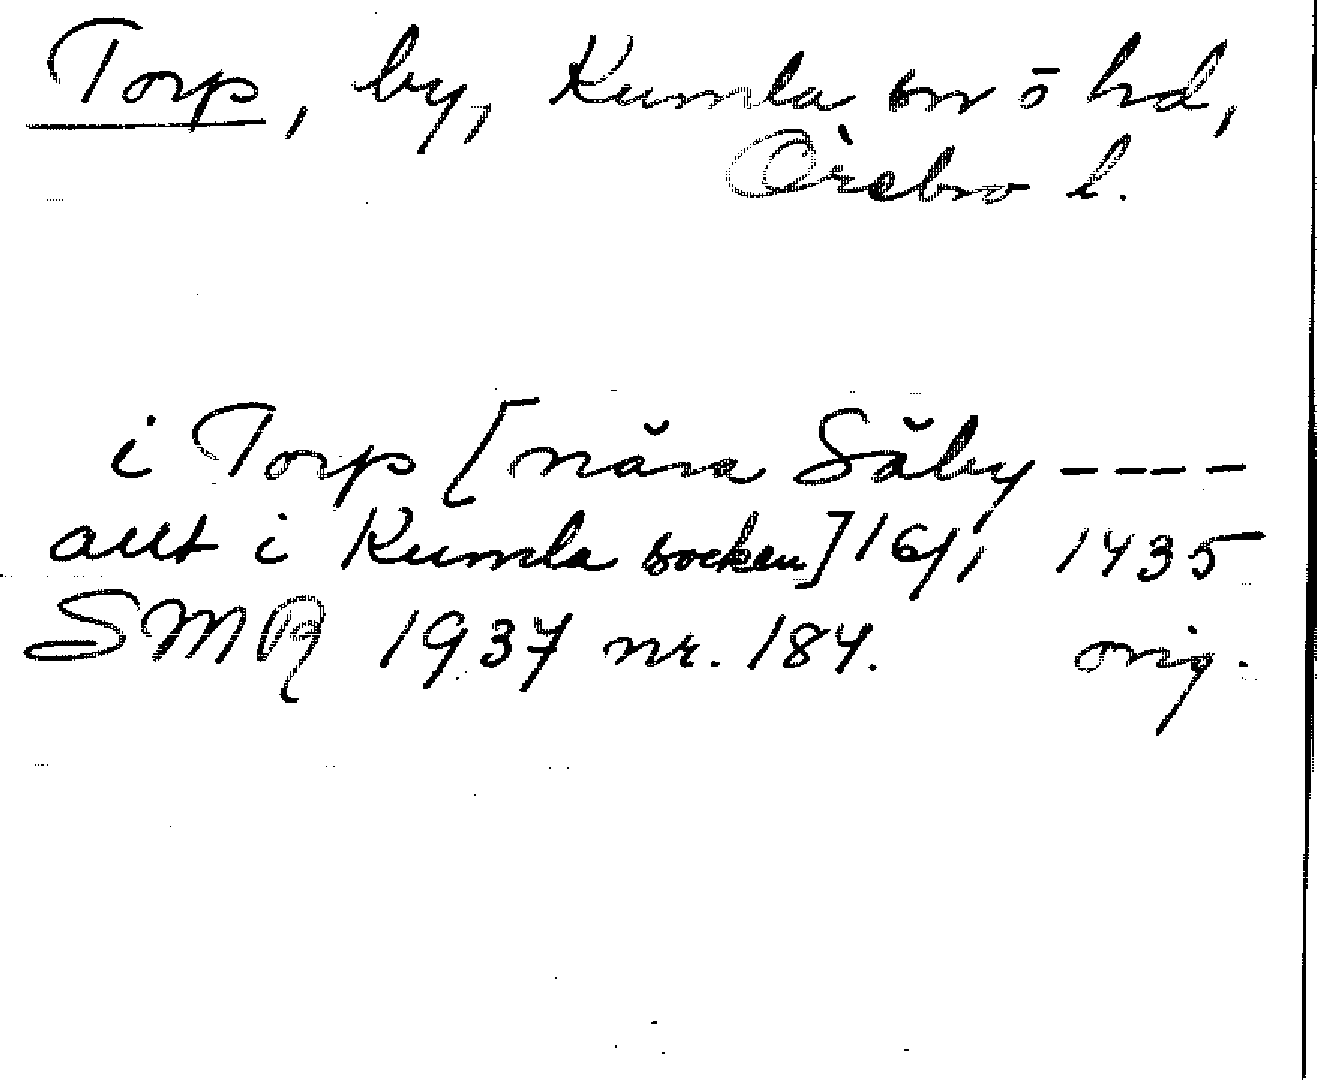 Torp, by, Kumla sn o hd,
Örebro l.
i Torp [nära Säby ----
allt i Kumla socken] 16/1 1435
SMR 1937 nr. 184. orig.